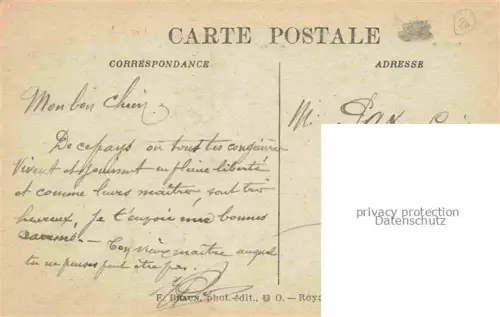 CARTE POSTALE
CORRESPONDANCE
ADRESSE
Mon bon Chien
M. Pax
De ce pays où tous tes congénères
vivent et jouissent en pleine liberté
et comme leurs maîtres, sont très
heureux, je t'envoie mes bonnes
Ton vieux maître auquel
tu ne penses peut être pas.
privacy protection
Datenschutz
E. BRAUN, phot.-édit., O. — Roy